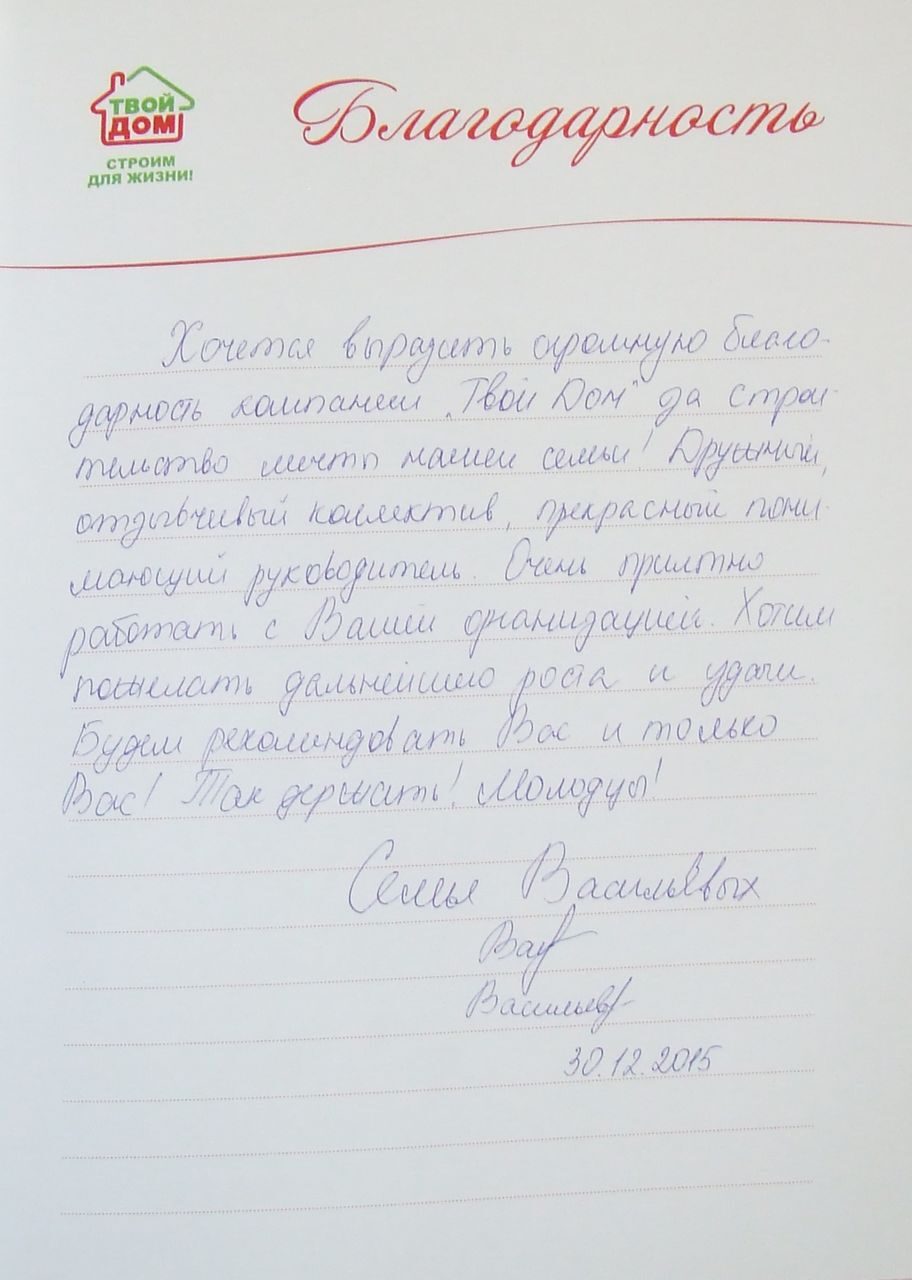 ТВОЙ
ДОМ
СТРОИМ
ДЛЯ ЖИЗНИ!
Благодарность
Хочется выразить огромную благо-
дарность компании „Твой Дом" за строи-
тельство мечты нашей семьи! Дружный,
отзывчивый коллектив, прекрасный пони-
мающий руководитель. Очень приятно
работать с Вашей организацией. Хотим
пожелать дальнейшего роста и удачи.
Будем рекомендовать Вас и только
Вас! Так держать! Молодцы!
Семья Васильевых
Васильев
30.12.2015